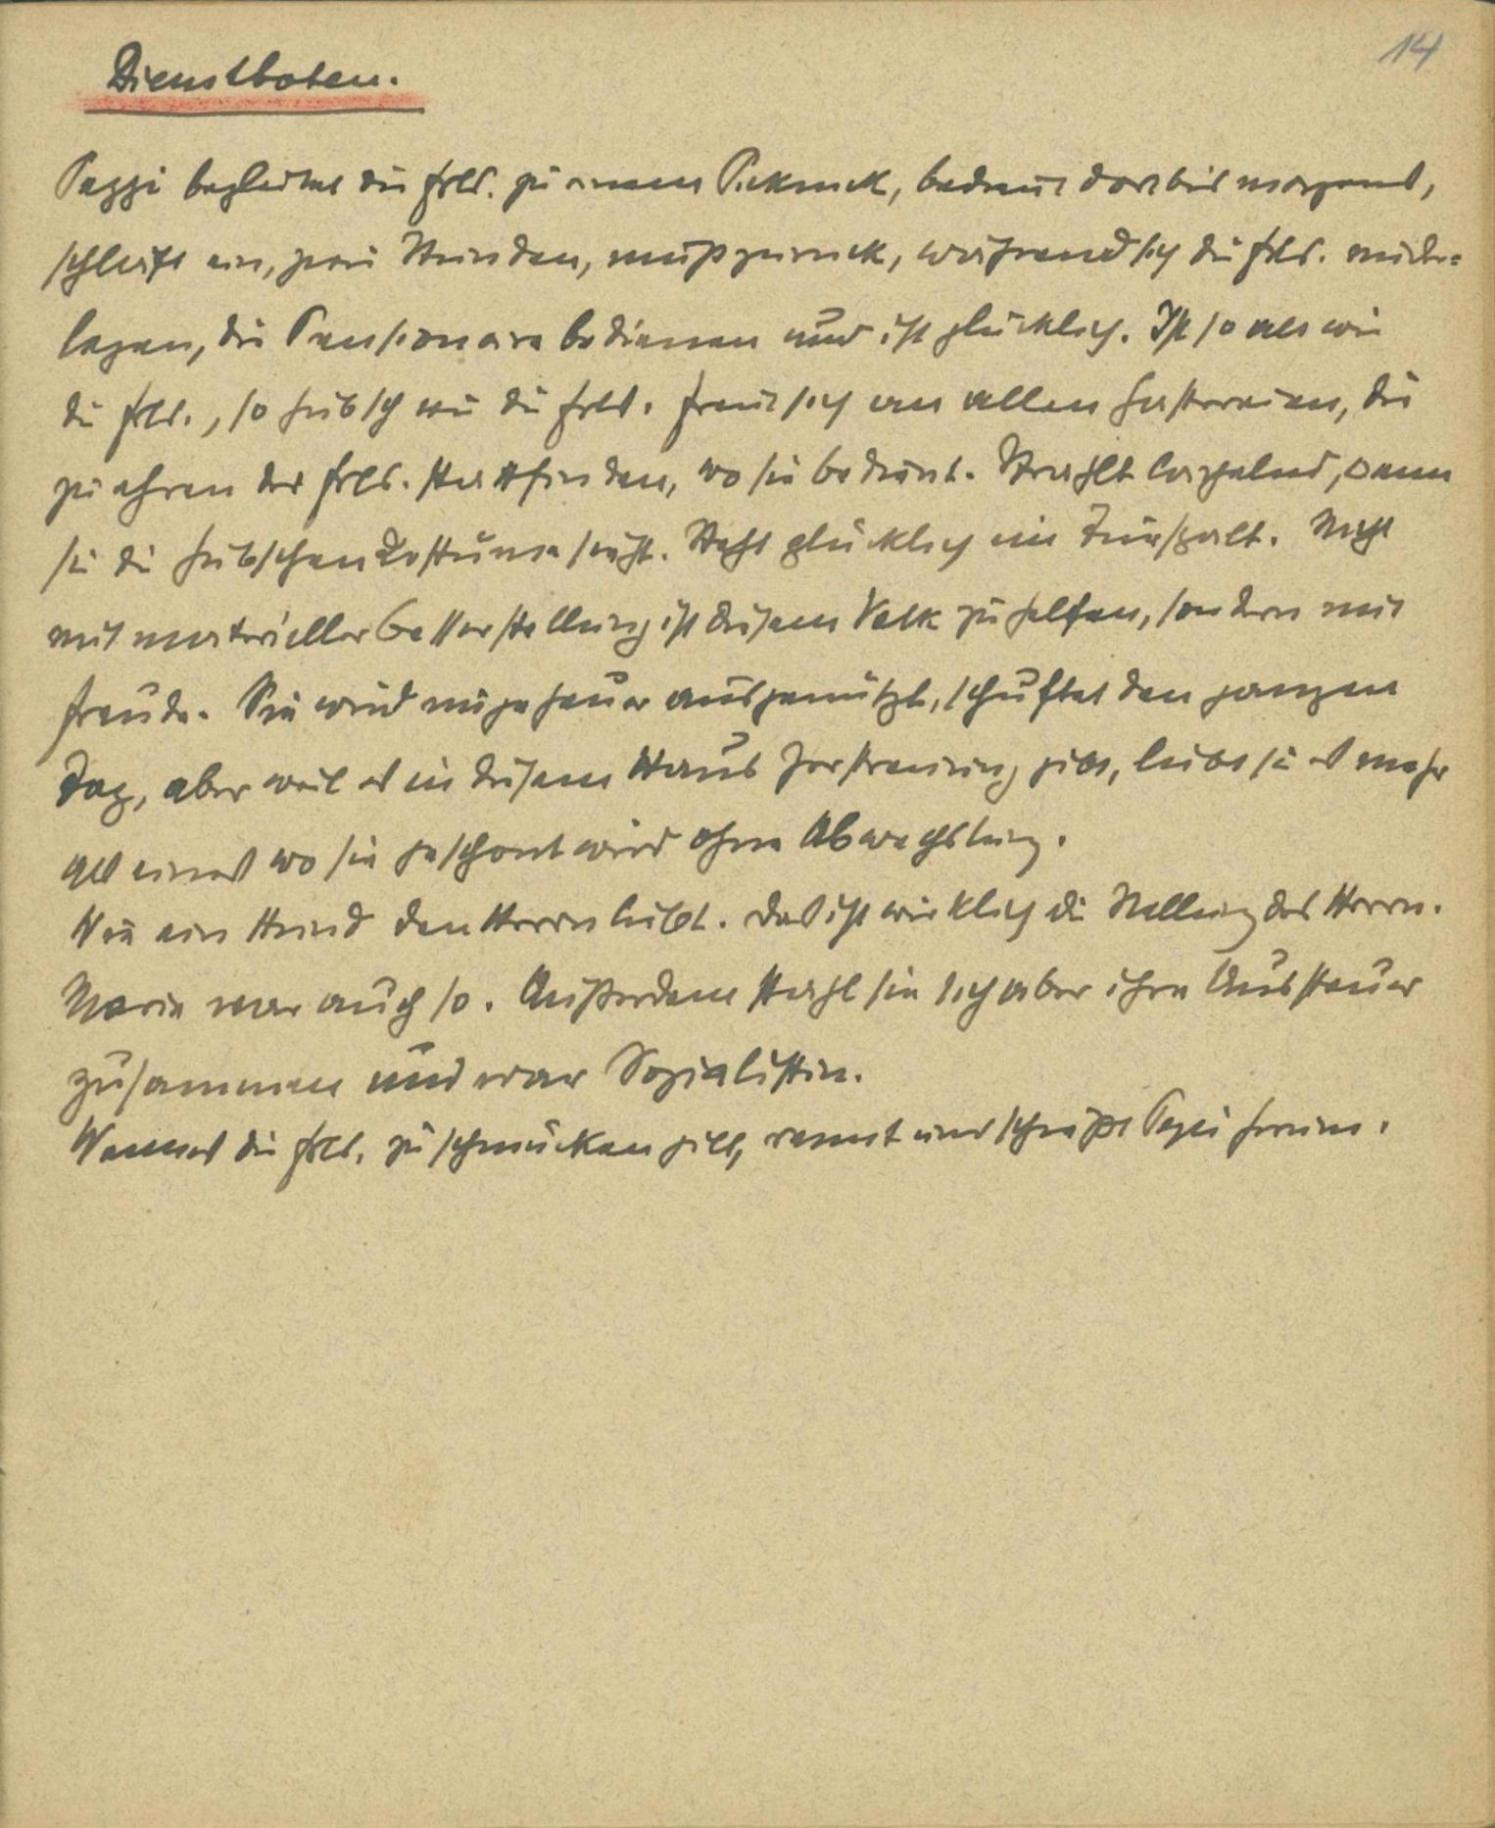 14
Dienstboten.
Peggi begleitet die Frls. zu einem Picknick, bedient dort bis morgens,
schläft ein, zwei Stunden, muß zurück, während sich die Frls. nieder=
legen, die Pensionäre bedienen und ist glücklich. Ist so alt wie
die Frls., so hübsch wie die Frls. Freut sich an allen Gastereien, die
zu ehren der Frls. stattfinden, wo sie bedient. Strahlt lächelnd, wenn
sie die hübschen Kostüme sieht. Steht glücklich im Türspalt. Nicht
mit materieller Besserstellung ist diesem Volk zu helfen, sondern mit
Freude. Sie wird ungeheuer ausgenützt, schuftet den ganzen
Tag, aber weil es in diesem Haus Zerstreuung gibt, liebt sie es mehr
als eines wo sie geschont wird ohne Abwechslung.
Wie ein Hund den Herrn liebt. Das ist wirklich die Stellung des Herrn.
Marie war auch so. Außerdem stahl sie sich aber ihre Aussteuer
zusammen und war Sozialistin.
Wenn es die Frls. zu schmücken gilt, rennt und Pegi herum.